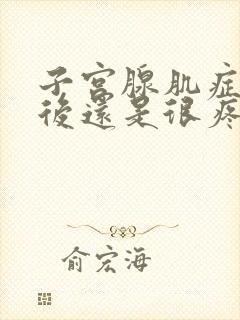 子宫腺肌症
後還是很疼
俞宏海